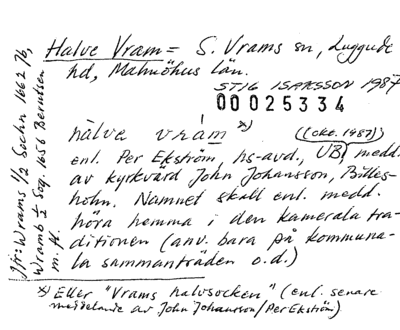 Halve Vram = S. Vrams sn, Luggude
hd, Malmöhus län.
STIG ISAKSSON 1987
00025334
hàlve vrám *)
((okt. 1987))
enl. Per Ekström, hs-avd., UB, medd.
av kyrkvärd John Johansson, Billes-
holm. Namnet skall enl. medd.
höra hemma i den kamerala tra-
ditionen (anv. bara på kommuna-
la sammanträden o.d.)
*) Eller "Vrams halvsocken" (enl. senare
meddelande av John Johansson/Per Ekström)
Jfr: Wrams 1/2 Sochn 1662 Jb,
Wramb 1/2 Sog. 1656 Berntsen
m.fl.